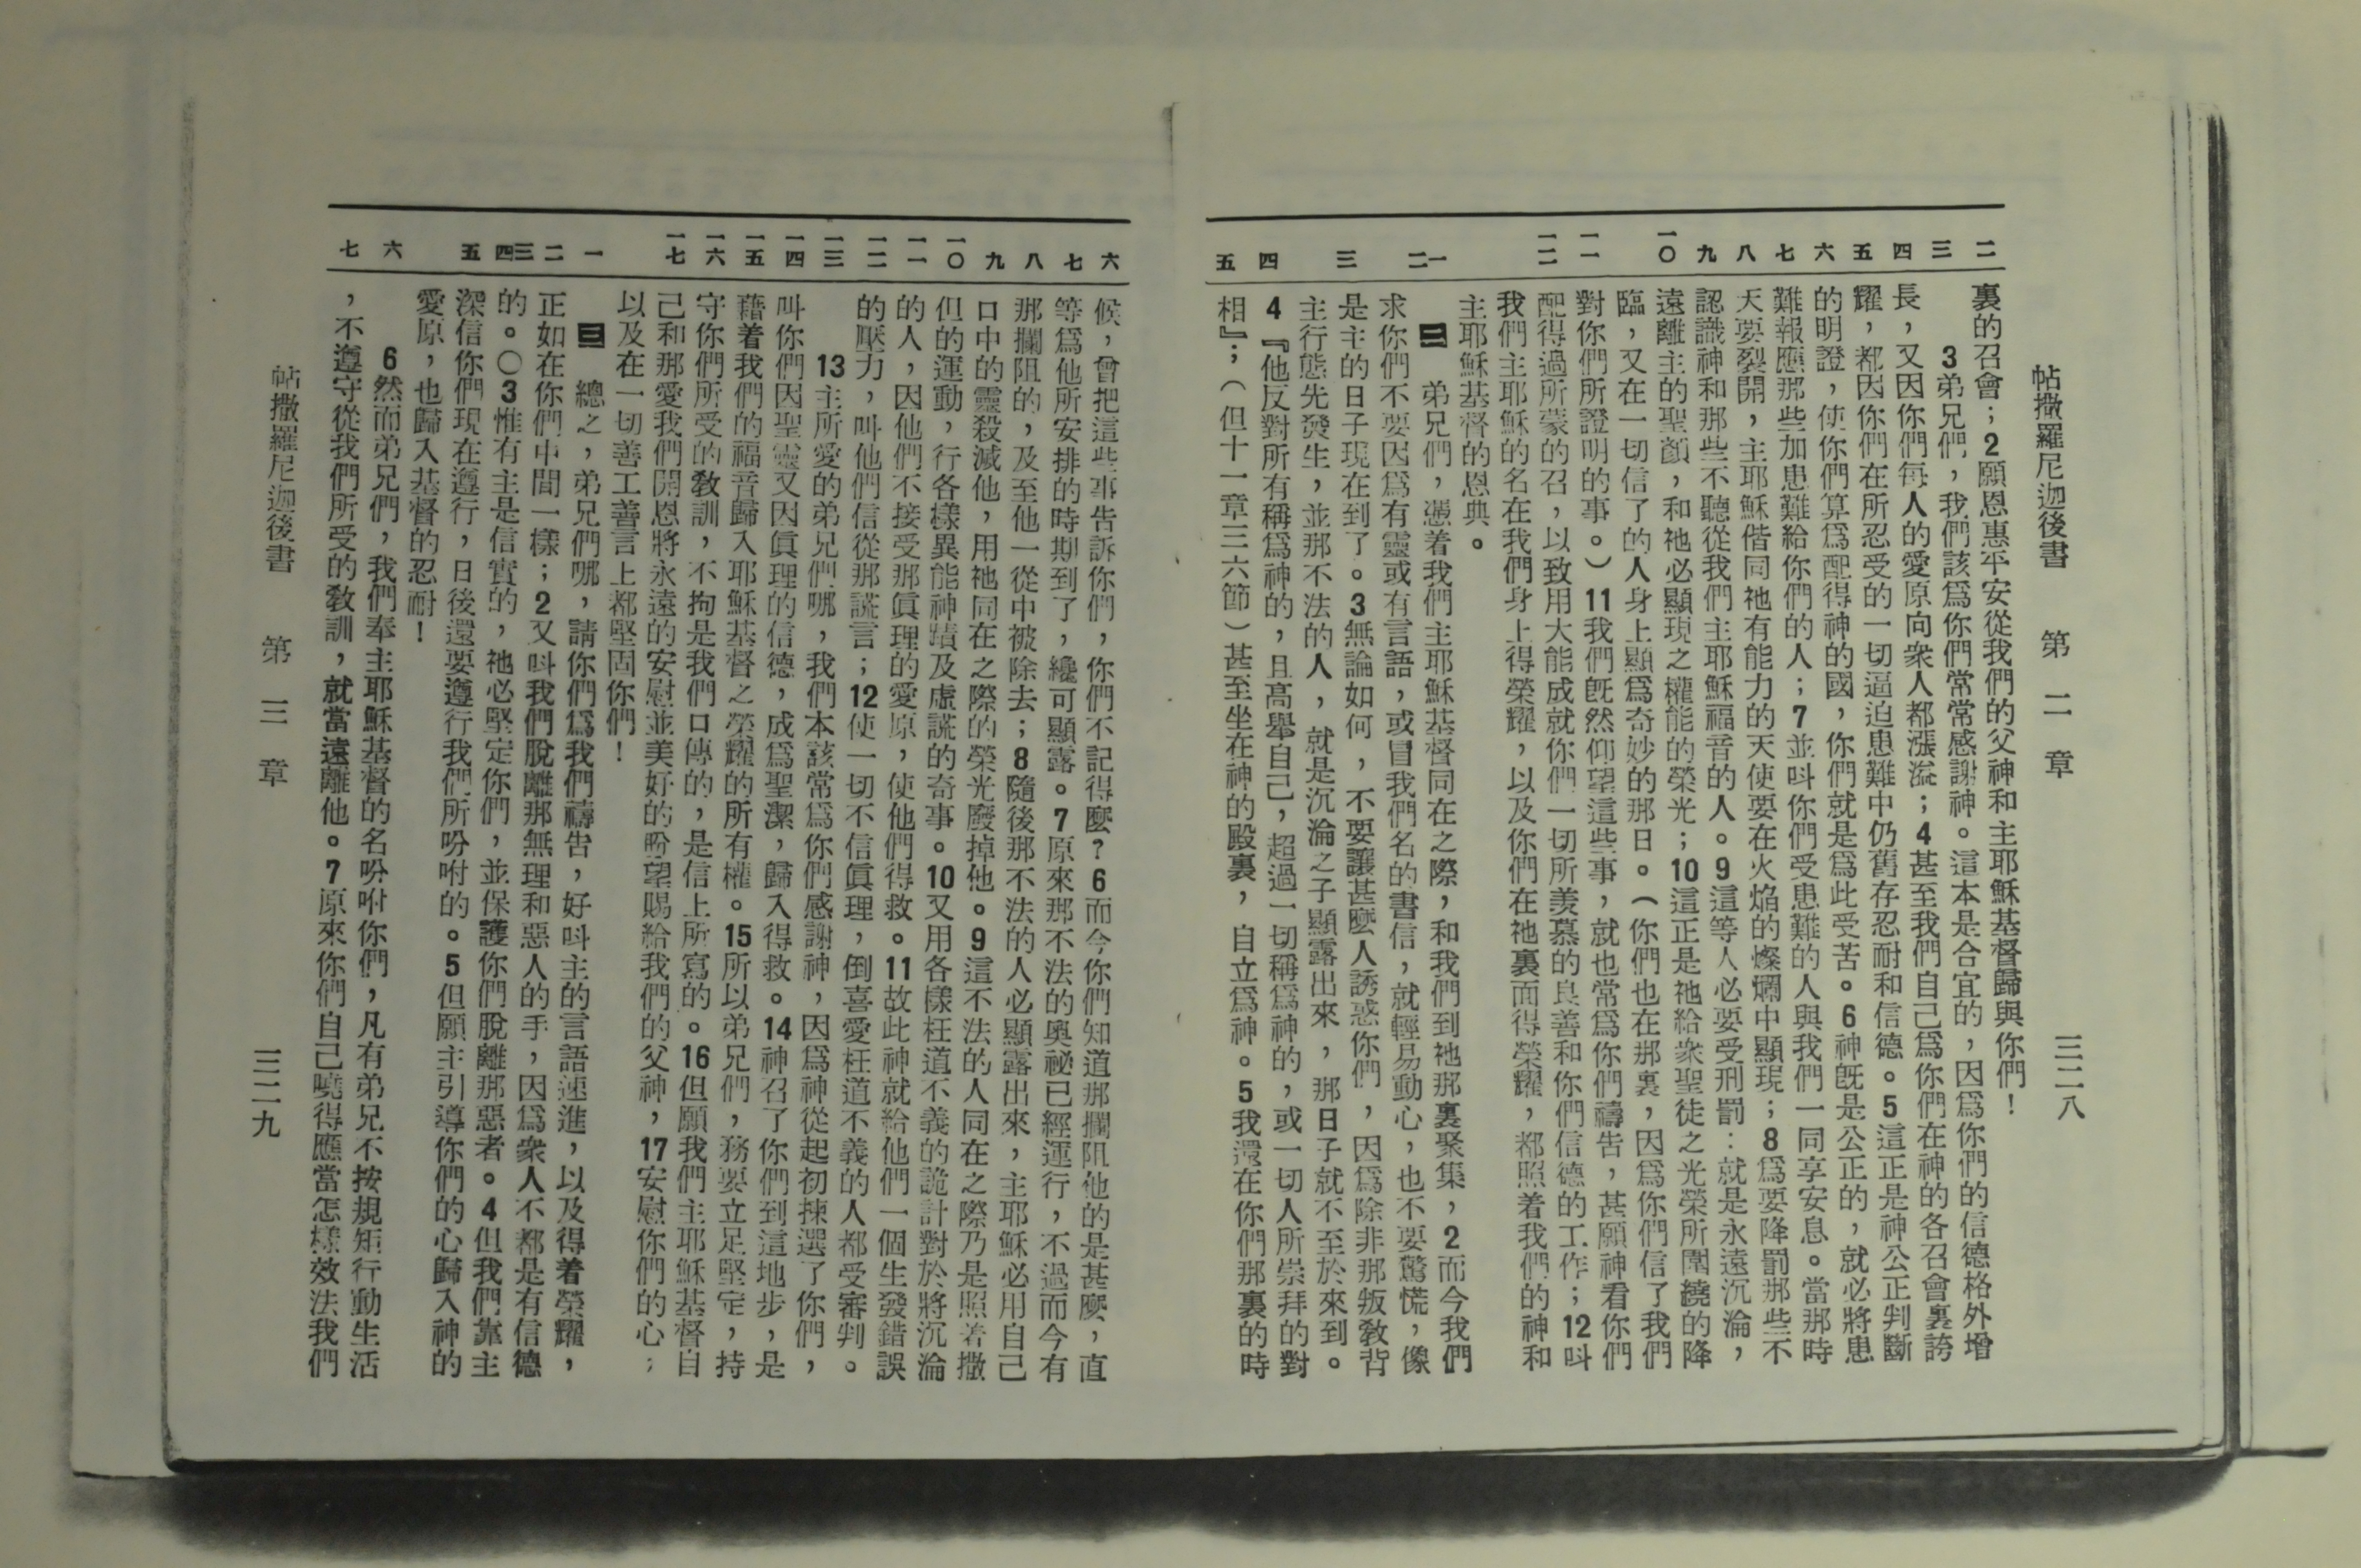 帖撒羅尼迦後書 第二章 三二八
二 三 四 五 六 七 八 九 一〇 一一 一二 一 二 三 四 五
裏的召會；2願恩惠平安從我們的父神和主耶穌基督歸與你們！
3弟兄們，我們該爲你們常常感謝神。這本是合宜的，因爲你們的信德格外增
長，又因你們每人的愛原向衆人都漲溢；4甚至我們自己爲你們在神的各召會裏誇
耀，都因你們在所忍受的一切逼迫患難中仍舊存忍耐和信德。5這正是神公正判斷
的明證，使你們算爲配得神的國，你們就是爲此受苦。6神旣是公正的，就必將患
難報應那些加患難給你們的人；7並叫你們受患難的人與我們一同享安息。當那時
天要裂開，主耶穌偕同祂有能力的天使要在火焰的燦爛中顯現；8爲要降罰那些不
認識神和那些不聽從我們主耶穌福音的人。9這等人必要受刑罰：就是永遠沉淪，
遠離主的聖顏，和祂必顯現之權能的榮光；10這正是祂給衆聖徒之光榮所圍繞的降
臨，又在一切信了的人身上顯爲奇妙的那日。（你們也在那裏，因爲你們信了我們
對你們所證明的事。）11我們旣然仰望這些事，就也常爲你們禱吿，甚願神看你們
配得過所蒙的召，以致用大能成就你們一切所羨慕的良善和你們信德的工作；12叫
我們主耶穌的名在我們身上得榮耀，以及你們在祂裏面得榮耀，都照着我們的神和
主耶穌基督的恩典。
二 弟兄們，憑着我們主耶穌基督同在之際，和我們到祂那裏聚集，2而今我們
求你們不要因爲有靈或有言語，或冒我們名的書信，就輕易動心，也不要驚慌，像
是主的日子現在到了。3無論如何，不要讓甚麼人誘惑你們，因爲除非那叛敎背
主行態先發生，並那不法的人，就是沉淪之子顯露出來，那日子就不至於來到。
4『他反對所有稱爲神的，且高舉自己，超過一切稱爲神的，或一切人所崇拜的對
相』；（但十一章三六節）甚至坐在神的殿裏，自立爲神。5我還在你們那裏的時
六 七 八 九 一〇 一一 一二 一三 一四 一五 一六 一七 一 二 三 四 五 六 七
候，曾把這些事告訴你們，你們不記得麼？6而今你們知道那攔阻他的是甚麼，直
等爲他所安排的時期到了，纔可顯露。7原來那不法的奧祕已經運行，不過而今有
那攔阻的，及至他一從中被除去；8隨後那不法的人必顯露出來，主耶穌必用自己
口中的靈殺滅他，用祂同在之際的榮光廢掉他。9這不法的人同在之際乃是照着撒
但的運動，行各樣異能神蹟及虛謊的奇事。10又用各樣枉道不義的詭計對於將沉淪
的人，因他們不接受那眞理的愛原，使他們得救。11故此神就給他們一個生發錯誤
的壓力，叫他們信從那謊言；12使一切不信眞理，倒喜愛枉道不義的人都受審判。
13主所愛的弟兄們哪，我們本該常爲你們感謝神，因爲神從起初揀選了你們，
叫你們因聖靈又因眞理的信德，成爲聖潔，歸入得救。14神召了你們到這地步，是
藉着我們的福音歸入耶穌基督之榮耀的所有權。15所以弟兄們，務要立足堅定，持
守你們所受的敎訓，不拘是我們口傳的，是信上所寫的。16但願我們主耶穌基督自
己和那愛我們開恩將永遠的安慰並美好的盼望賜給我們的父神，17安慰你們的心；
以及在一切善工善言上都堅固你們！
三 總之，弟兄們哪，請你們爲我們禱吿，好叫主的言語速進，以及得着榮耀，
正如在你們中間一樣；2又叫我們脫離那無理和惡人的手，因爲衆人不都是有信德
的。〇3惟有主是信實的，祂必堅定你們，並保護你們脫離那惡者。4但我們靠主
深信你們現在遵行，日後還要遵行我們所吩咐的。5但願主引導你們的心歸入神的
愛原，也歸入基督的忍耐！
6然而弟兄們，我們奉主耶穌基督的名吩咐你們，凡有弟兄不按規矩行動生活
，不遵守從我們所受的敎訓，就當遠離他。7原來你們自己曉得應當怎樣效法我們
帖撒羅尼迦後書 第三章 三二九